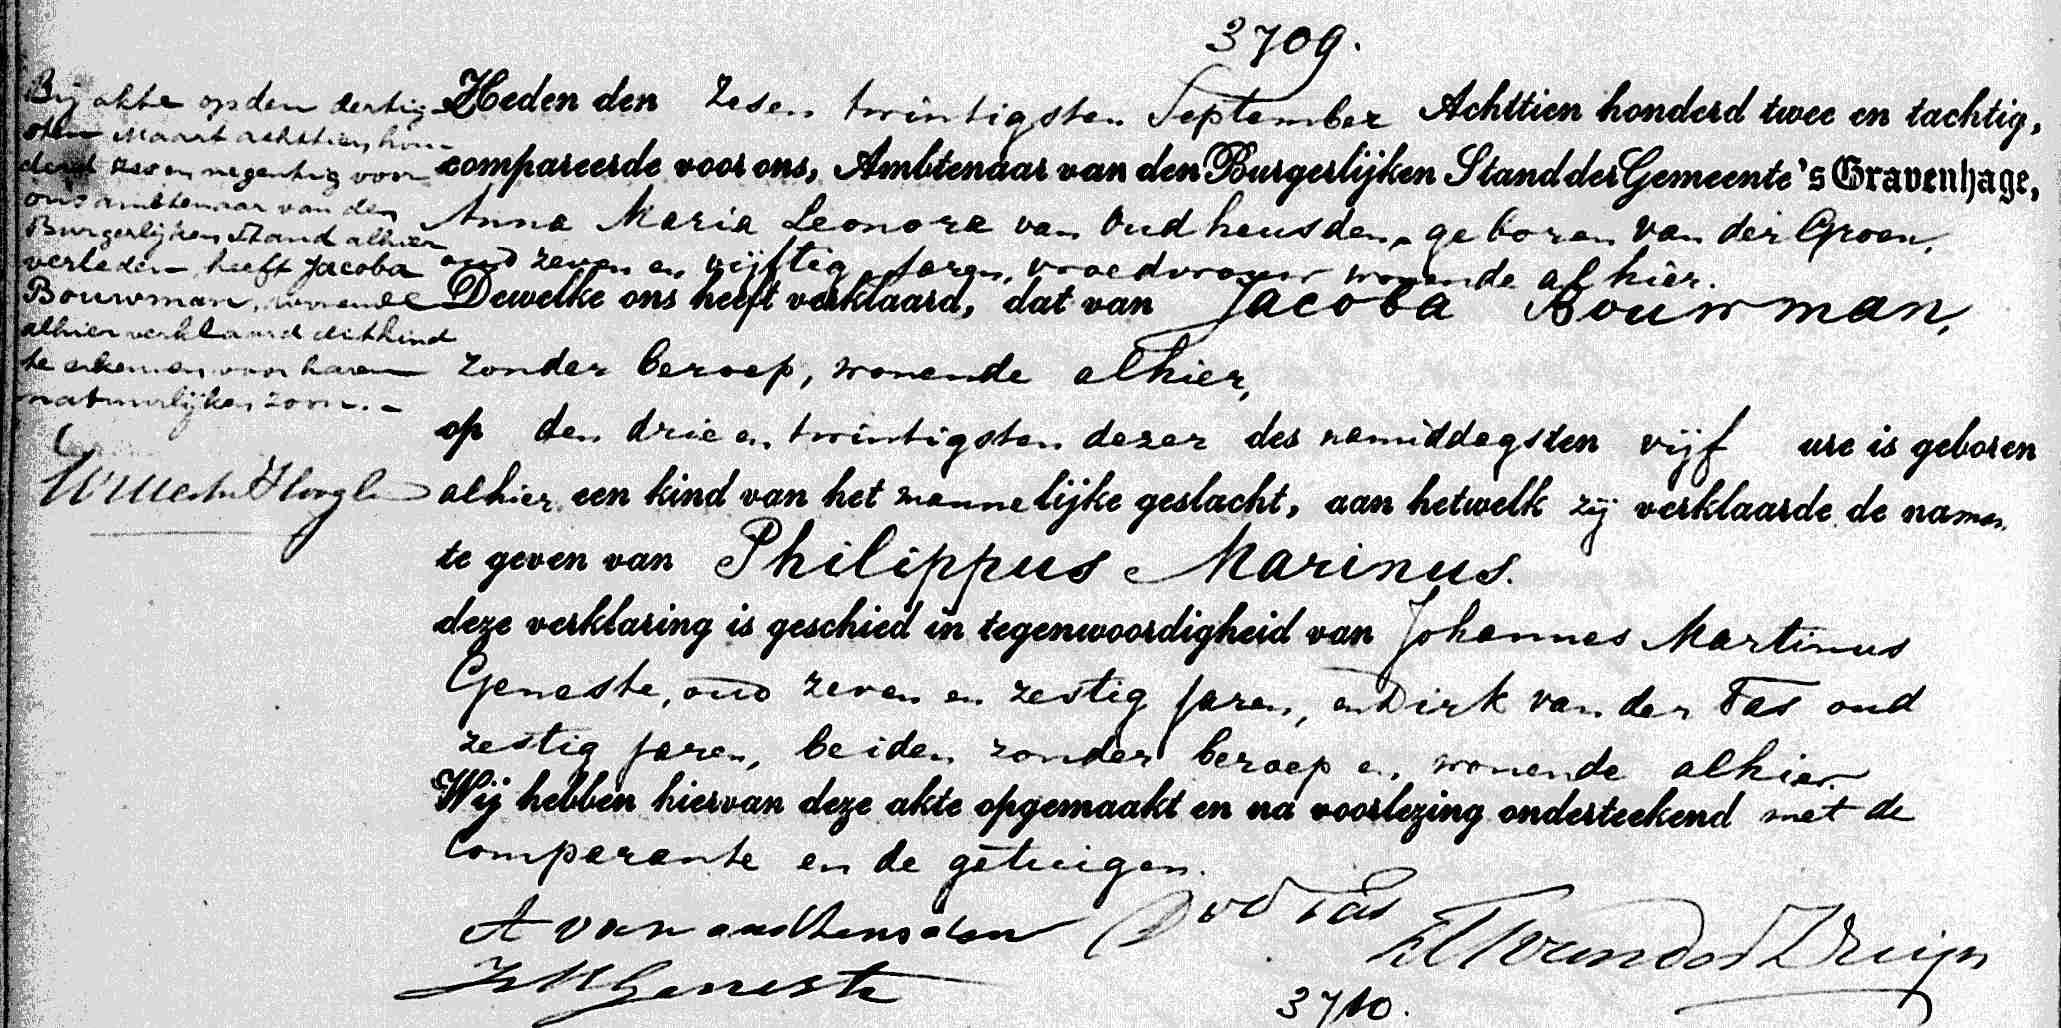 3709.
Bij akte op den dertig-
sten Maart achttien hon-
derd zes en negentig voor
ons ambtenaar van den
Burgerlijken Stand alhier
verleden heeft Jacoba
Bouwman, wonende
alhier verklaard dit kind
te erkennen voor haren
natuurlijken zoon.-
Heden den zesen twintigsten September Achttien honderd twee en tachtig,
compareerde voor ons, Ambtenaar van den Burgerlijken Stand der Gemeente 's Gravenhage,
Anna Maria Leonora van Oudheusden, geboren van der Groen,
oud zeven en vijftig Jaren, vroedvrouw wonende alhier.
Dewelke ons heeft verklaard, dat van Jacoba Bouwman,
zonder beroep, wonende alhier,
op den drie en twintigsten dezer des namiddagsten vijf ure is geboren
alhier een kind van het mannelijke geslacht, aan hetwelk zij verklaarde de namen
te geven van Philippus Marinus.
deze verklaring is geschied in tegenwoordigheid van Johannes Martinus
Geneste, oud zeven en zestig Jaren, en Dirk van der Tas oud
zestig Jaren, beiden zonder beroep en wonende alhier.
Wij hebben hiervan deze akte opgemaakt en na voorlezing onderteekend met de
Comparante en de getuigen.
A van oudheusden D v d Tas
J M Geneste
3710.